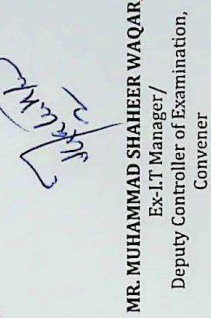 MR. MUHAMMAD SHAHEER WAQAR
Ex-I.T Manager/
Deputy Controller of Examination,
Convener